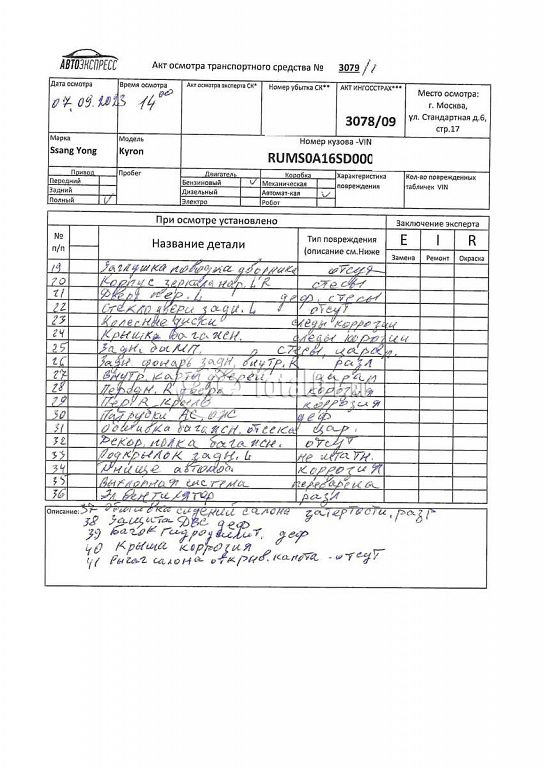 АВТОЭКСПРЕСС
Акт осмотра транспортного средства № 3079/1
Дата осмотра
07.09.2023
Время осмотра
14 00
Акт осмотра эксперта СК*
Номер убытка СК**
АКТ ИНГОССТРАХ***
3078/09
Место осмотра:
г. Москва,
ул. Стандартная д.6,
стр.17
Марка
Ssang Yong
Модель
Kyron
Номер кузова -VIN
RUMS0A16SD000
Привод
Передний
Задний
Полный ✓
Пробег
Двигатель
Бензиновый ✓
Дизельный
Электро
Коробка
Механическая
Автомат-кая ✓
Робот
Характеристика
повреждения
Кол-во поврежденных
табличек VIN
При осмотре установлено
Заключение эксперта
№
п/п
Название детали
Тип повреждения
(описание см.Ниже
E I R
Замена Ремонт Окраска
19 Заглушка поводка дворника отсут
20 Корпус зеркала нар. L R стесы
21 Дверь пер. L деф. стесы
22 Стекло двери задн. L отсут
23 Колесные диски следы коррозии
24 Крышка багажн. следы корозии
25 Задн. бамп. стесы, царап.
26 Задн фонарь задн. внутр. R разл
27 Внутр. карты дверей царап
28 Передн. R дверь корозия
29 Пер R крыло коррозия
30 Патрубки АС, ОЖ деф
31 Обшивка багажн. отсека цар.
32 Декор. полка багажн. отсут
33 Подкрылок задн. L не штатн.
34 Днище автомоб коррозия
35 Выхлопная система переварена
36 Эл вентилятор разл
Описание: 37 Обшивка сидений салона затертости, разр
38 Защита ДВС деф
39 Бачок гидроусилит. деф
40 Крыша коррозия
41 Рычаг салона открыв. капота - отсут